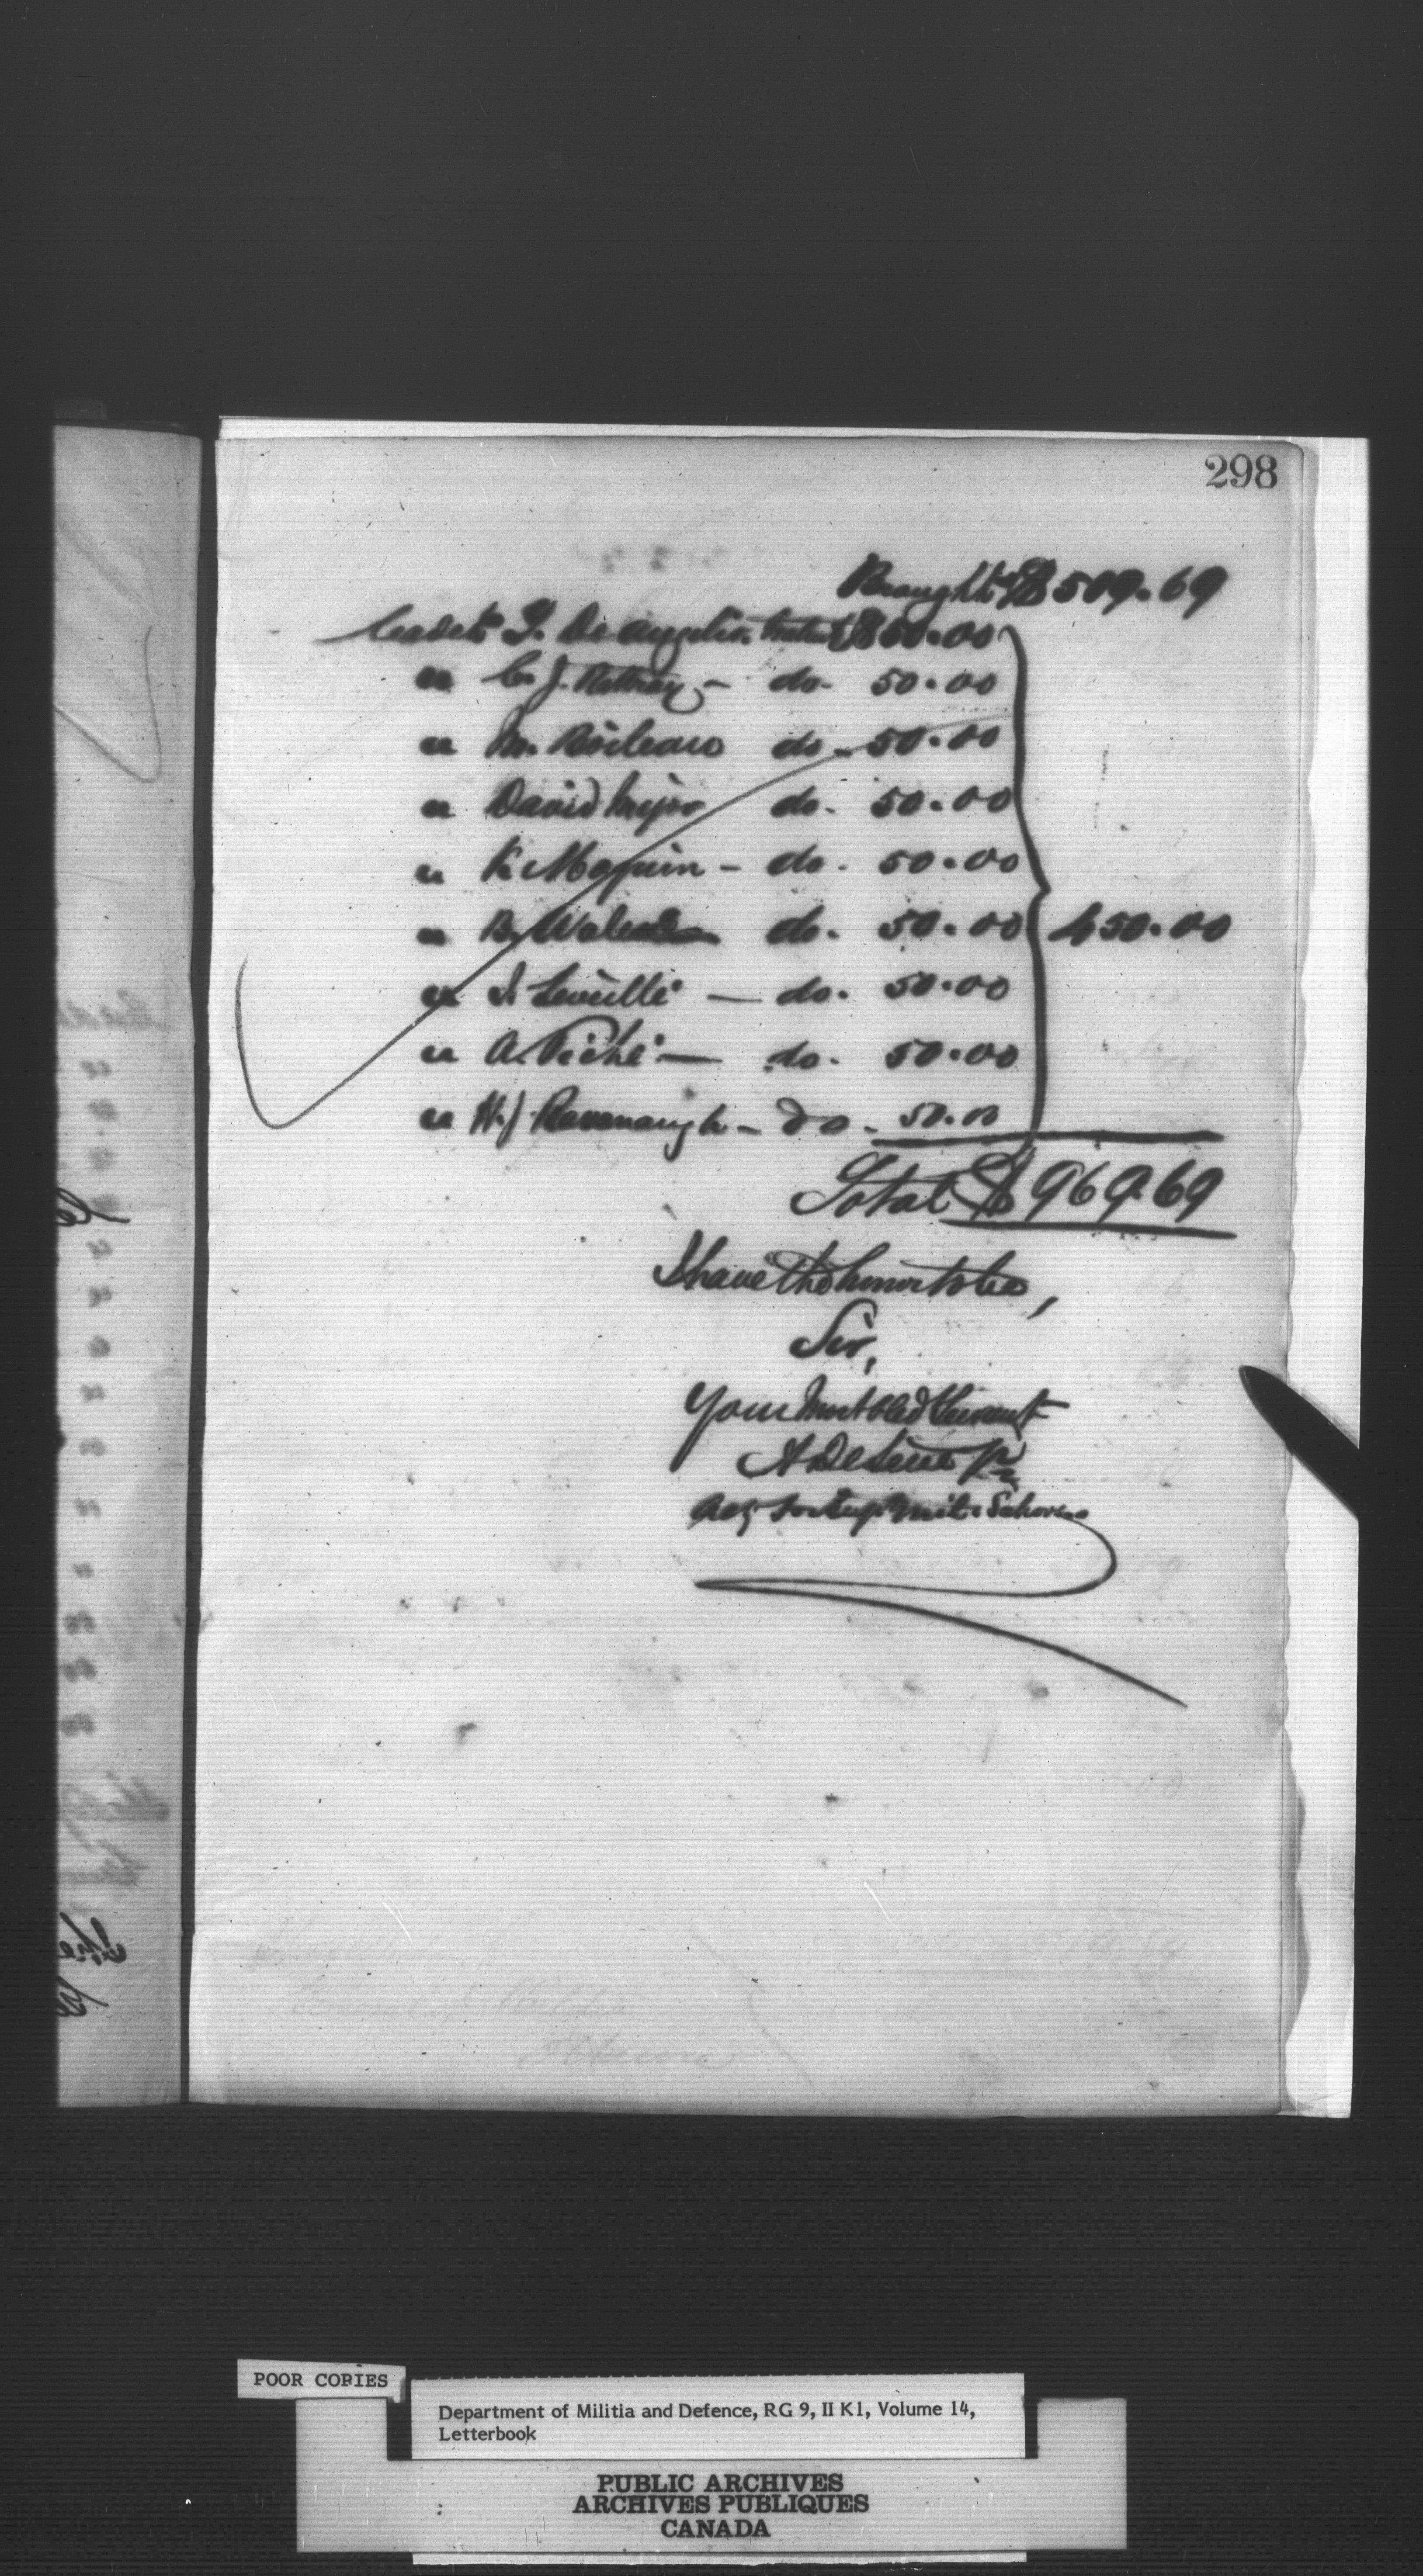 298
Brought $ 509.69
Cadet J. De Angelis $50.00
" C. J. - do. 50.00
" M. Boileau do - 50.00
" David do. 50.00
" K. Maguin - do. 50.00
" B. do. 50.00
" J. Leveillé — do. 50.00
" A. Piché — do. 50.00
" H. J. Kavanaugh - do - 50.00
450.00
Total $ 969.69
I have the honor to be,
Sir,
Your most obed Servant
Mil. Schools
Ottawa
POOR COPIES
Department of Militia and Defence, RG 9, II K1, Volume 14,
Letterbook
PUBLIC ARCHIVES
ARCHIVES PUBLIQUES
CANADA